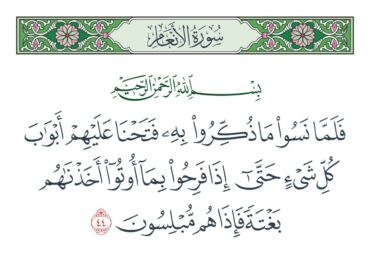 سُورَةُ الْأَنْعَامِ
بِسْمِ اللَّهِ الرَّحْمَٰنِ الرَّحِيمِ
فَلَمَّا نَسُوا۟ مَا ذُكِّرُوا۟ بِهِۦ فَتَحْنَا عَلَيْهِمْ أَبْوَٰبَ
كُلِّ شَىْءٍ حَتَّىٰٓ إِذَا فَرِحُوا۟ بِمَآ أُوتُوٓا۟ أَخَذْنَٰهُم
بَغْتَةً فَإِذَا هُم مُّبْلِسُونَ ٤٤